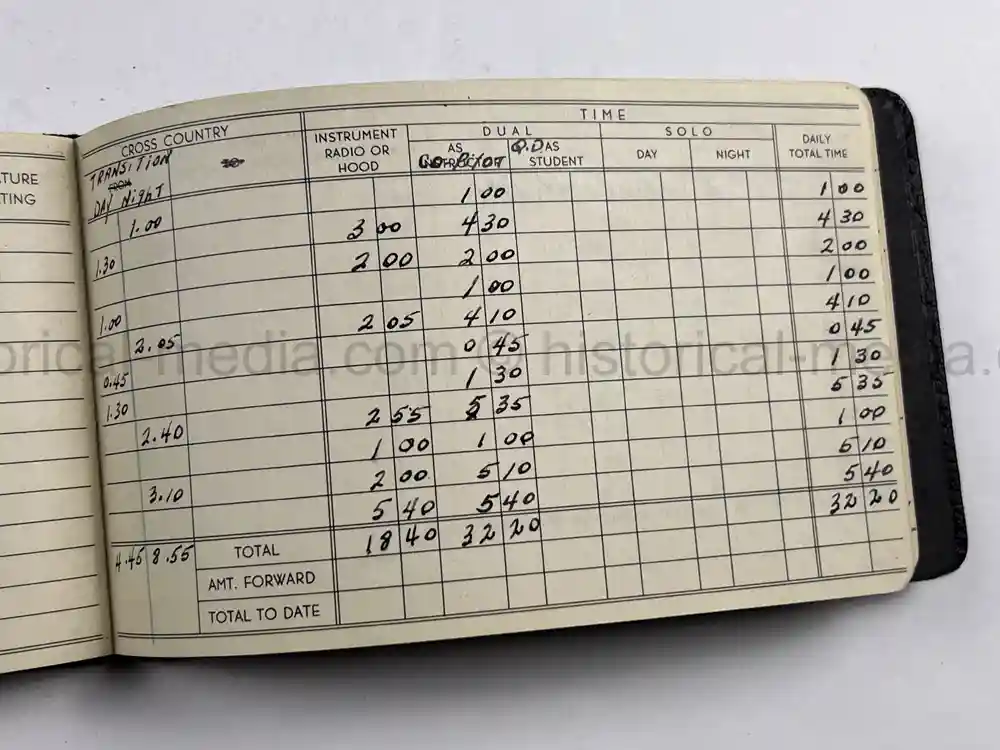 TIME
CROSS COUNTRY
INSTRUMENT RADIO OR HOOD
DUAL
SOLO
DAILY TOTAL TIME
AS
AS STUDENT
DAY
NIGHT
TURE
TING
TRANSITION
FROM
DAY NighT
1 00 1 00
1.00 3 00 4 30 4 30
1.30 2 00 2 00 2 00
1 00 1 00
1.00 2.05 2 05 4 10 4 10
0.45 0 45 0 45
1.30 1 30 1 30
2.40 2 55 5 35 5 35
1 00 1 00 1 00
3.10 2 00 5 10 5 10
5 40 5 40 5 40
4.45 8.55 TOTAL 18 40 32 20 32 20
AMT. FORWARD
TOTAL TO DATE
orical-media.com © historical-media.c